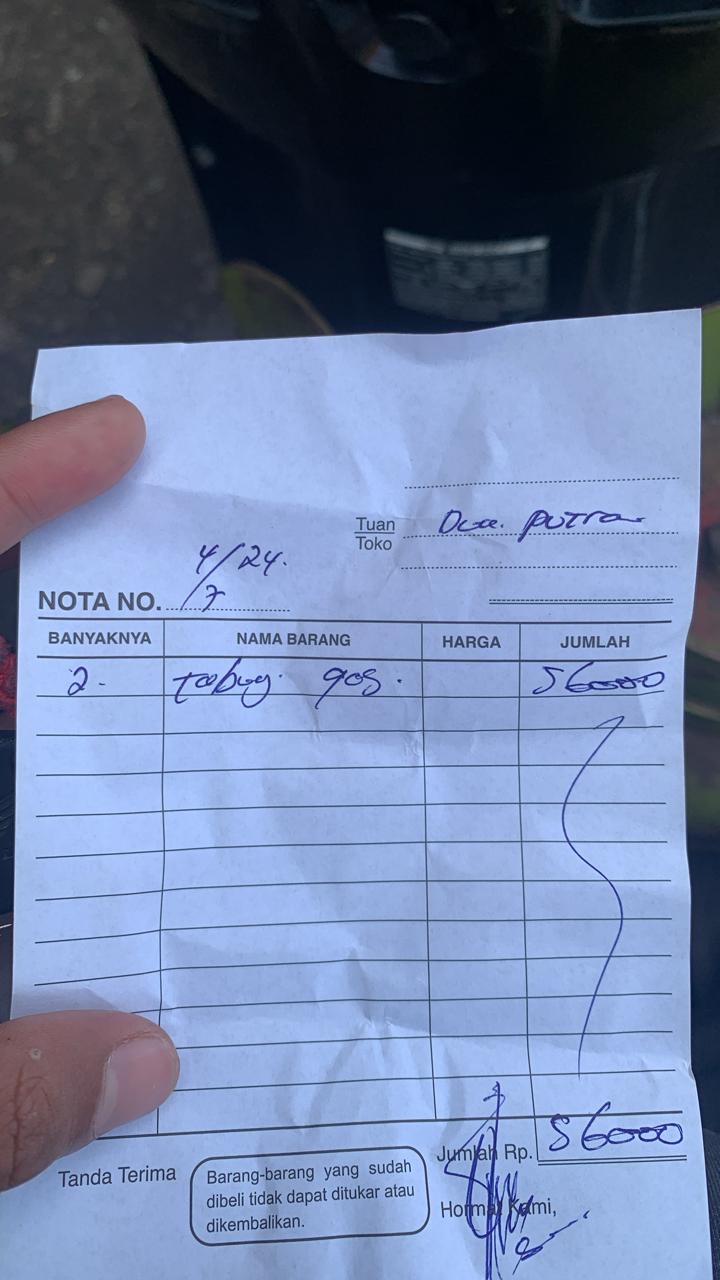 Tuan Dua. putra
Toko
4/24.
NOTA NO. /7
BANYAKNYA NAMA BARANG HARGA JUMLAH
2. tabug. gas. 56000
Jumlah Rp. 56000
Tanda Terima
Barang-barang yang sudah
dibeli tidak dapat ditukar atau
dikembalikan.
Hormat Kami,